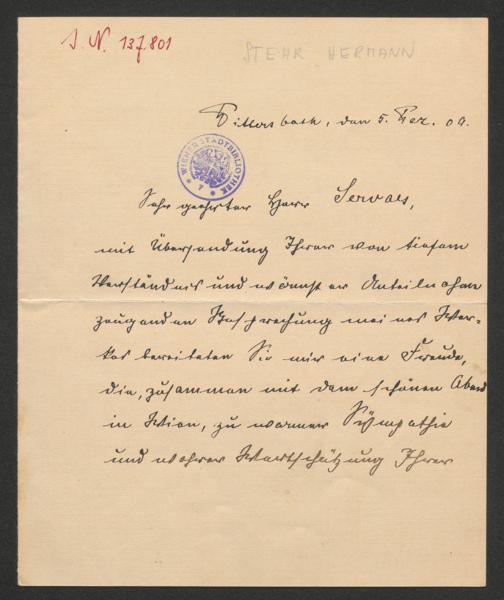 I. N. 137.801
STEHR HERMANN
Dittersbach, den 5. Dez. 09.
WIENER STADTBIBLIOTHEK
Sehr geehrter Herr Servaes,
mit Übersendung Ihrer von tiefem
Verständnis und wärmster Anteilnahme
zeugenden Besprechung meines Wer-
kes bereiteten Sie mir eine Freude,
die, zusammen mit dem schönen Abend
in Wien, zu warmer Sympathie
und wahrer Wertschätzung Ihrer